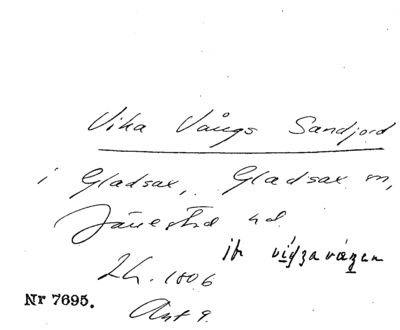 Vika Vångs Sandjord
i Gladsax, Gladsax sn,
Järrestad hd.
Lh. 1806
Nr 7695.
Akt 9.